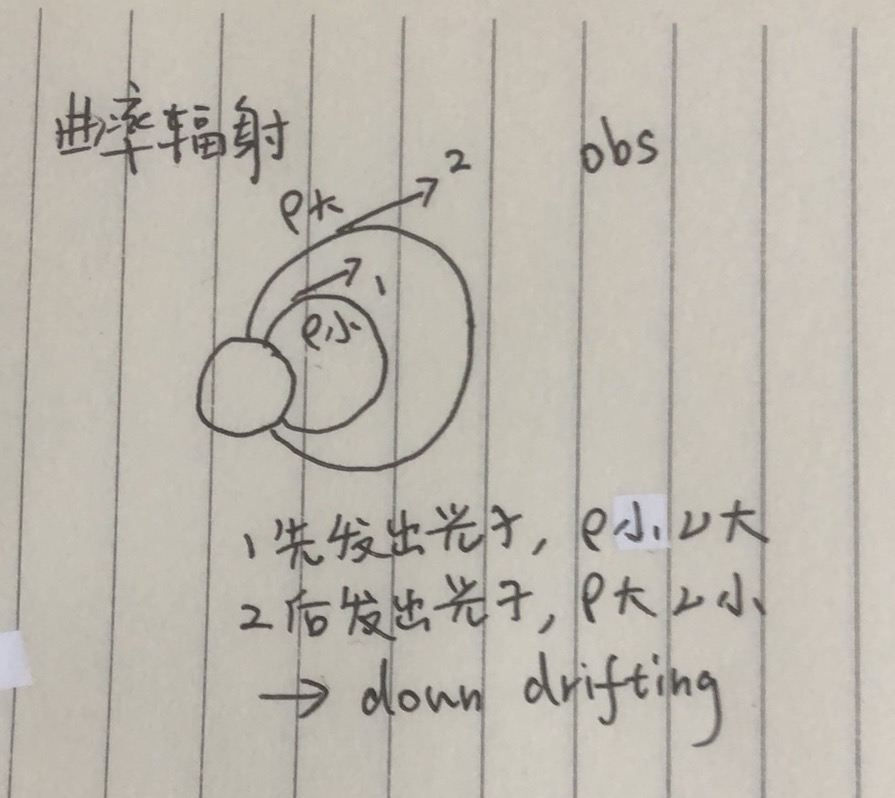 曲率辐射
obs
ρ大 2
1
ρ小
1先发出光子, ρ小 ν大
2后发出光子, ρ大 ν小
→ down drifting